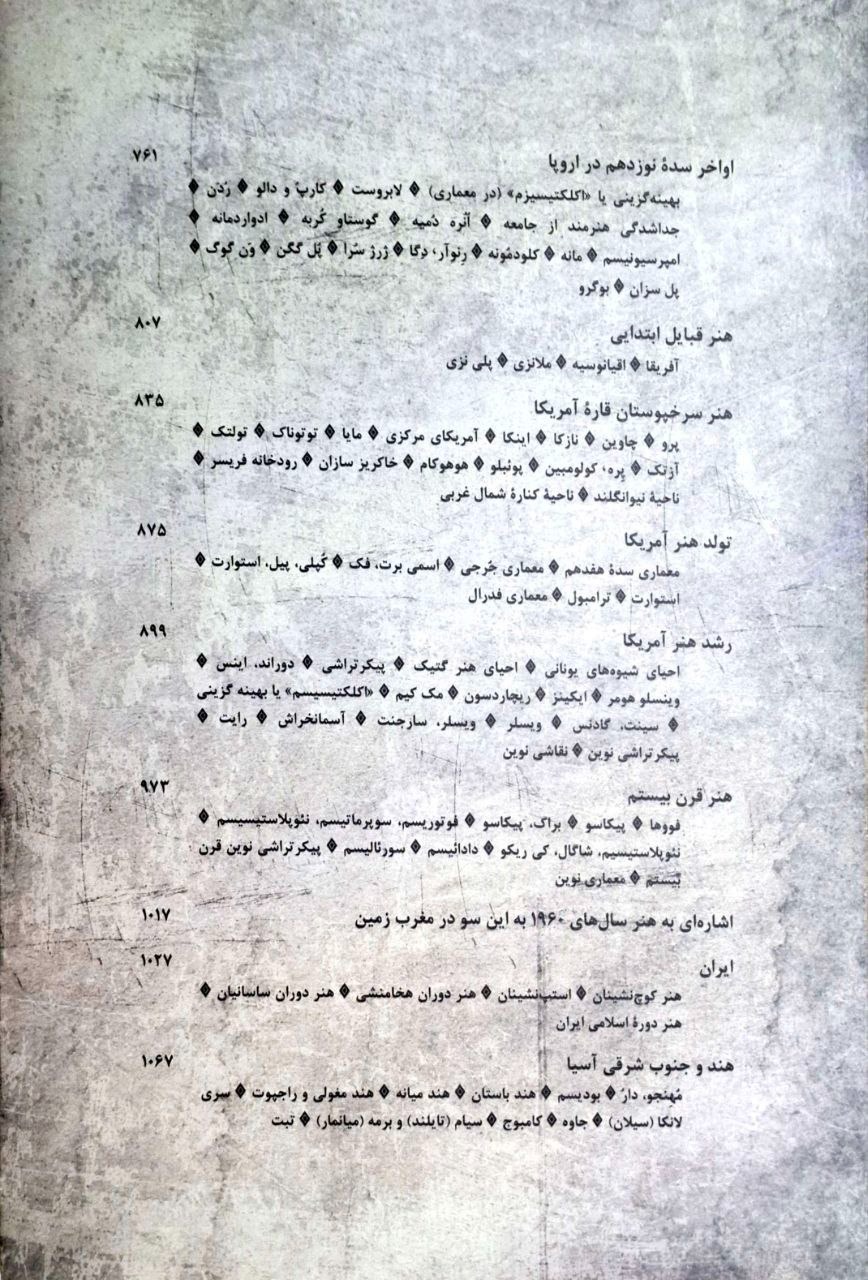 اواخر سدهٔ نوزدهم در اروپا ۷۶۱
بهینه‌گزینی یا «اکلکتیسیزم» (در معماری) ♦ لابروست ♦ کارپُ و دالو ♦ رُدَن ♦
جداشدگی هنرمند از جامعه ♦ آنُره دُمیه ♦ گوستاو کُربه ♦ ادواردمانه
امپرسیونیسم ♦ مانه ♦ کلودمُونه ♦ رِنوآر، دِگا ♦ ژرژ سُرا ♦ پُل گگن ♦ وَن گوگ ♦
پل سزان ♦ بوگرو
هنر قبایل ابتدایی ۸۰۷
آفریقا ♦ اقیانوسیه ♦ ملانزی ♦ پلی نزی
هنر سرخپوستان قارهٔ آمریکا ۸۳۵
پرو ♦ چاوین ♦ نازکا ♦ اینکا ♦ آمریکای مرکزی ♦ مایا ♦ توتوناک ♦ تولتک ♦
آزتک ♦ پِره، کولومبین ♦ پوئبلو ♦ هوهوکام ♦ خاکریز سازان ♦ رودخانه فریسر ♦
ناحیهٔ نیوانگلند ♦ ناحیهٔ کنارهٔ شمال غربی
تولد هنر آمریکا ۸۷۵
معماری سدهٔ هفدهم ♦ معماری جُرجی ♦ اسمی برت، فک ♦ کُپلی، پیل، استوارت ♦
استوارت ♦ ترامبول ♦ معماری فدرال
رشد هنر آمریکا ۸۹۹
احیای شیوه‌های یونانی ♦ احیای هنر گتیک ♦ پیکرتراشی ♦ دوراند، اینس ♦
وینسلو هومر ♦ ایکینز ♦ ریچاردسون ♦ مک کیم ♦ «اکلکتیسیسم» یا بهینه گزینی
♦ سینت، گادنس ♦ ویسلر ♦ ویسلر، سارجنت ♦ آسمانخراش ♦ رایت ♦
پیکرتراشی نوین ♦ نقاشی نوین
هنر قرن بیستم ۹۷۳
فووها ♦ پیکاسو ♦ براک، پیکاسو ♦ فوتوریسم، سوپرماتیسم، نئوپلاستیسیسم ♦
نئوپلاستیسیم، شاگال، کی ریکو ♦ دادائیسم ♦ سورئالیسم ♦ پیکرتراشی نوین قرن
بیستم ♦ معماری نوین
اشاره‌ای به هنر سال‌های ۱۹۶۰ به این سو در مغرب زمین ۱۰۱۷
ایران ۱۰۲۷
هنر کوچ‌نشینان ♦ استپ‌نشینان ♦ هنر دوران هخامنشی ♦ هنر دوران ساسانیان ♦
هنر دورهٔ اسلامی ایران
هند و جنوب شرقی آسیا ۱۰۶۷
مُهنجو، دارُ ♦ بودیسم ♦ هند باستان ♦ هند میانه ♦ هند مغولی و راجپوت ♦ سری
لانکا (سیلان) ♦ جاوه ♦ کامبوج ♦ سیام (تایلند) و برمه (میانمار) ♦ تبت